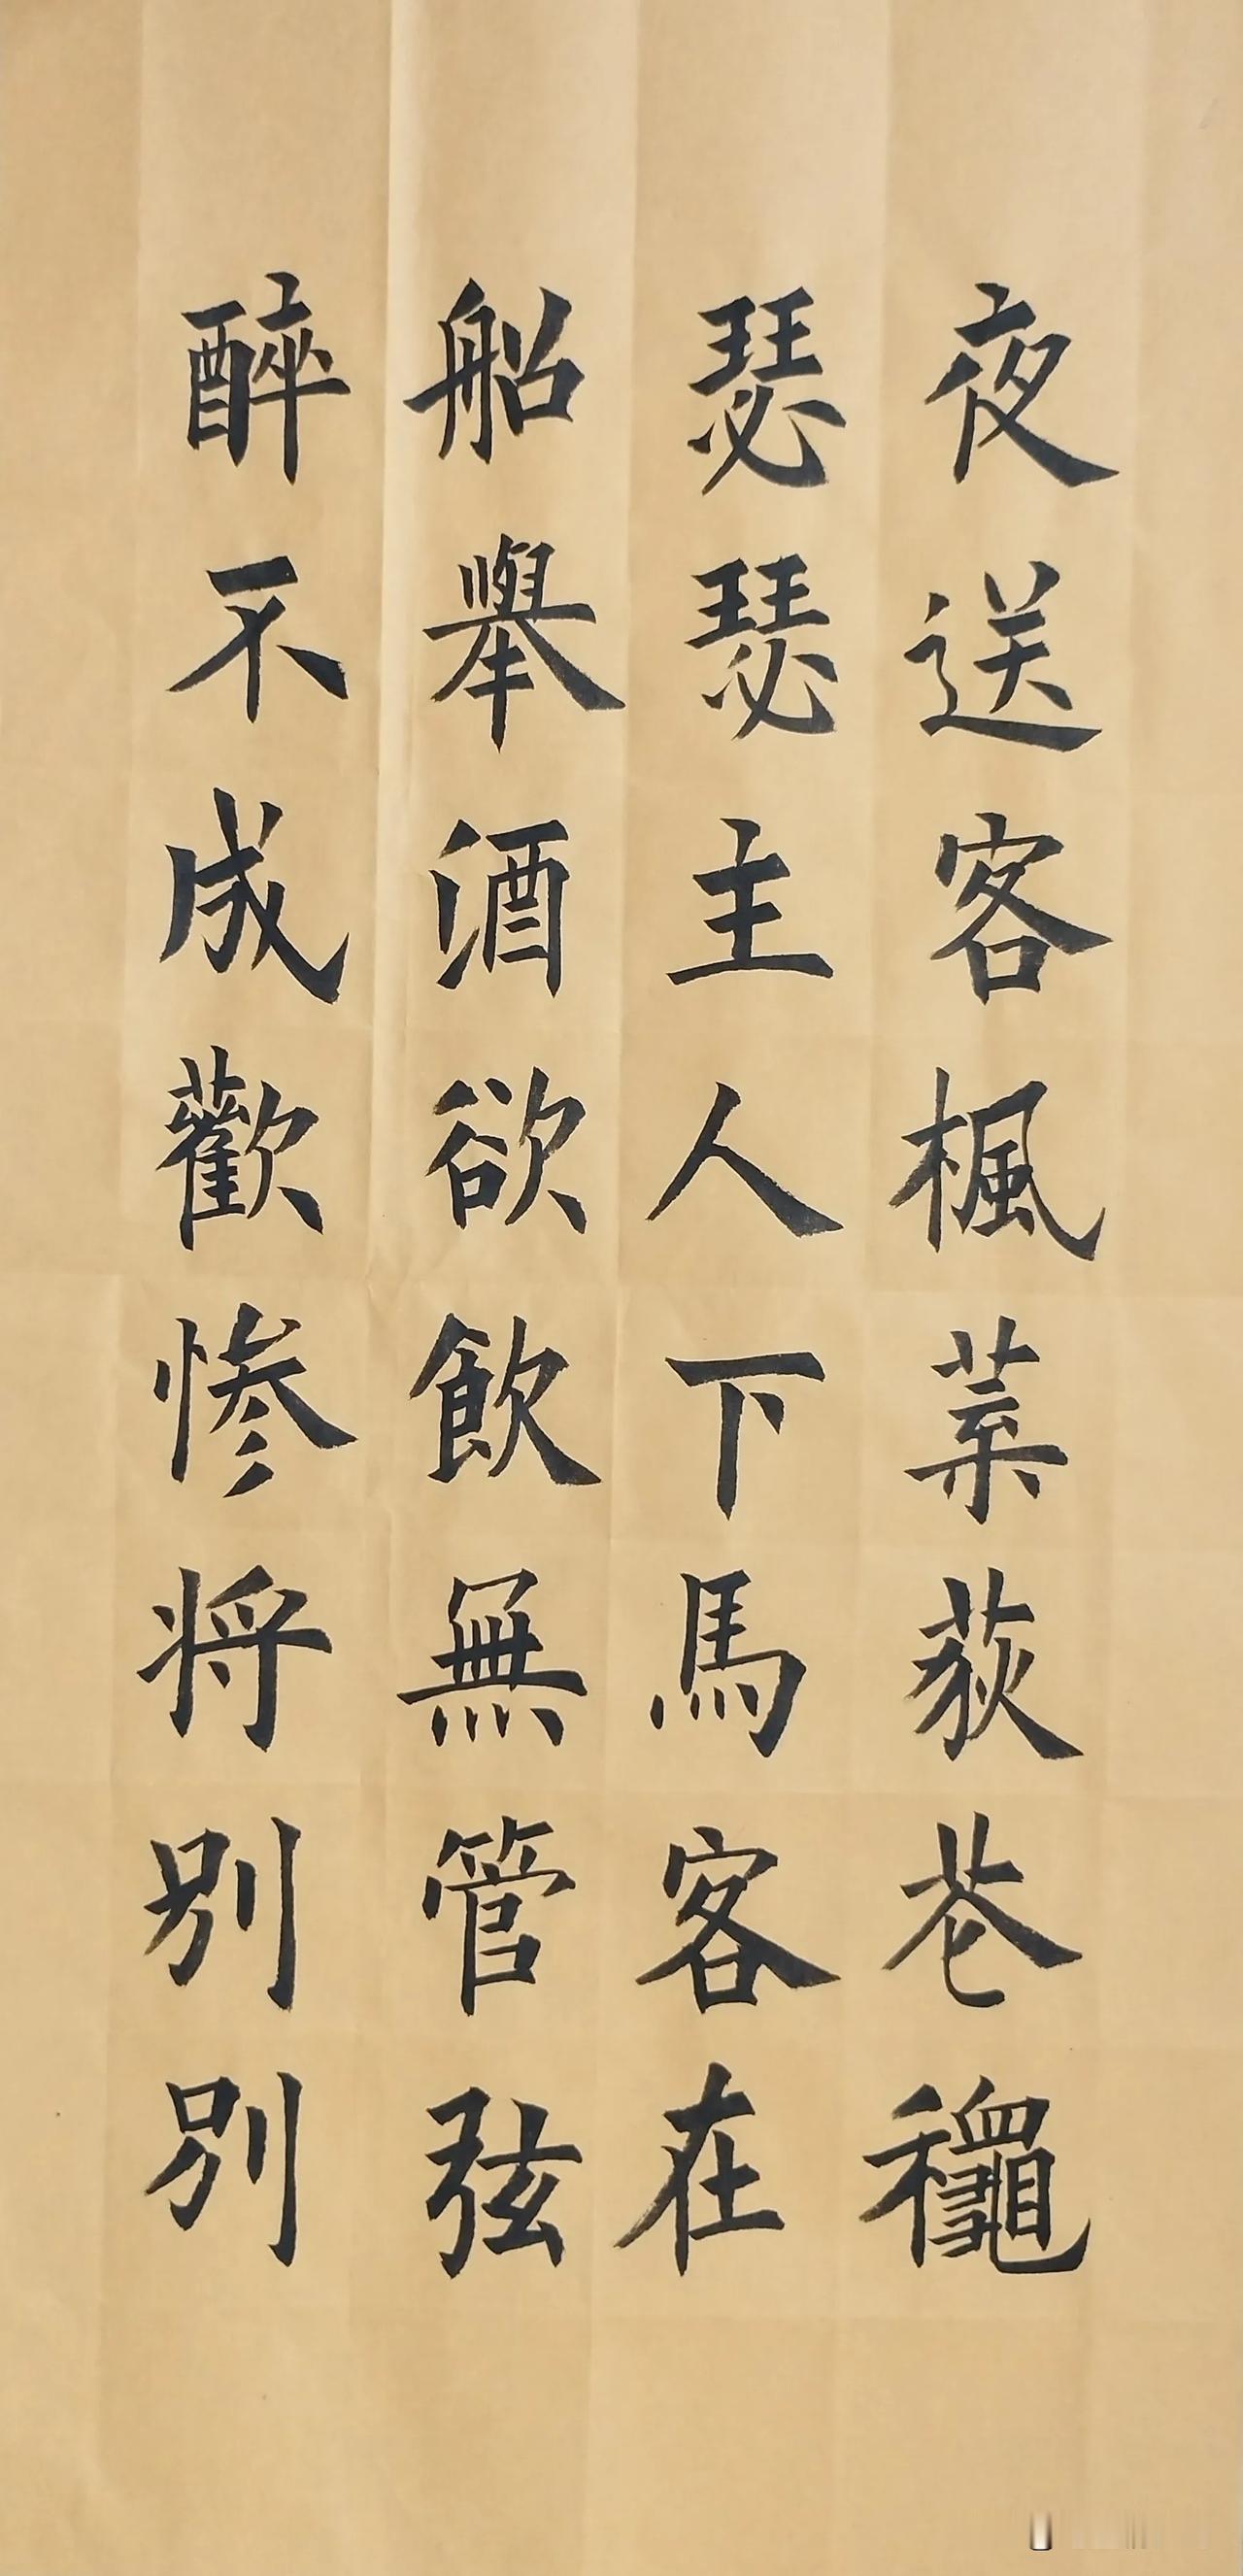 夜送客楓葉荻花龝
瑟瑟主人下馬客在
船舉酒欲飲無管弦
醉不成歡惨将别别